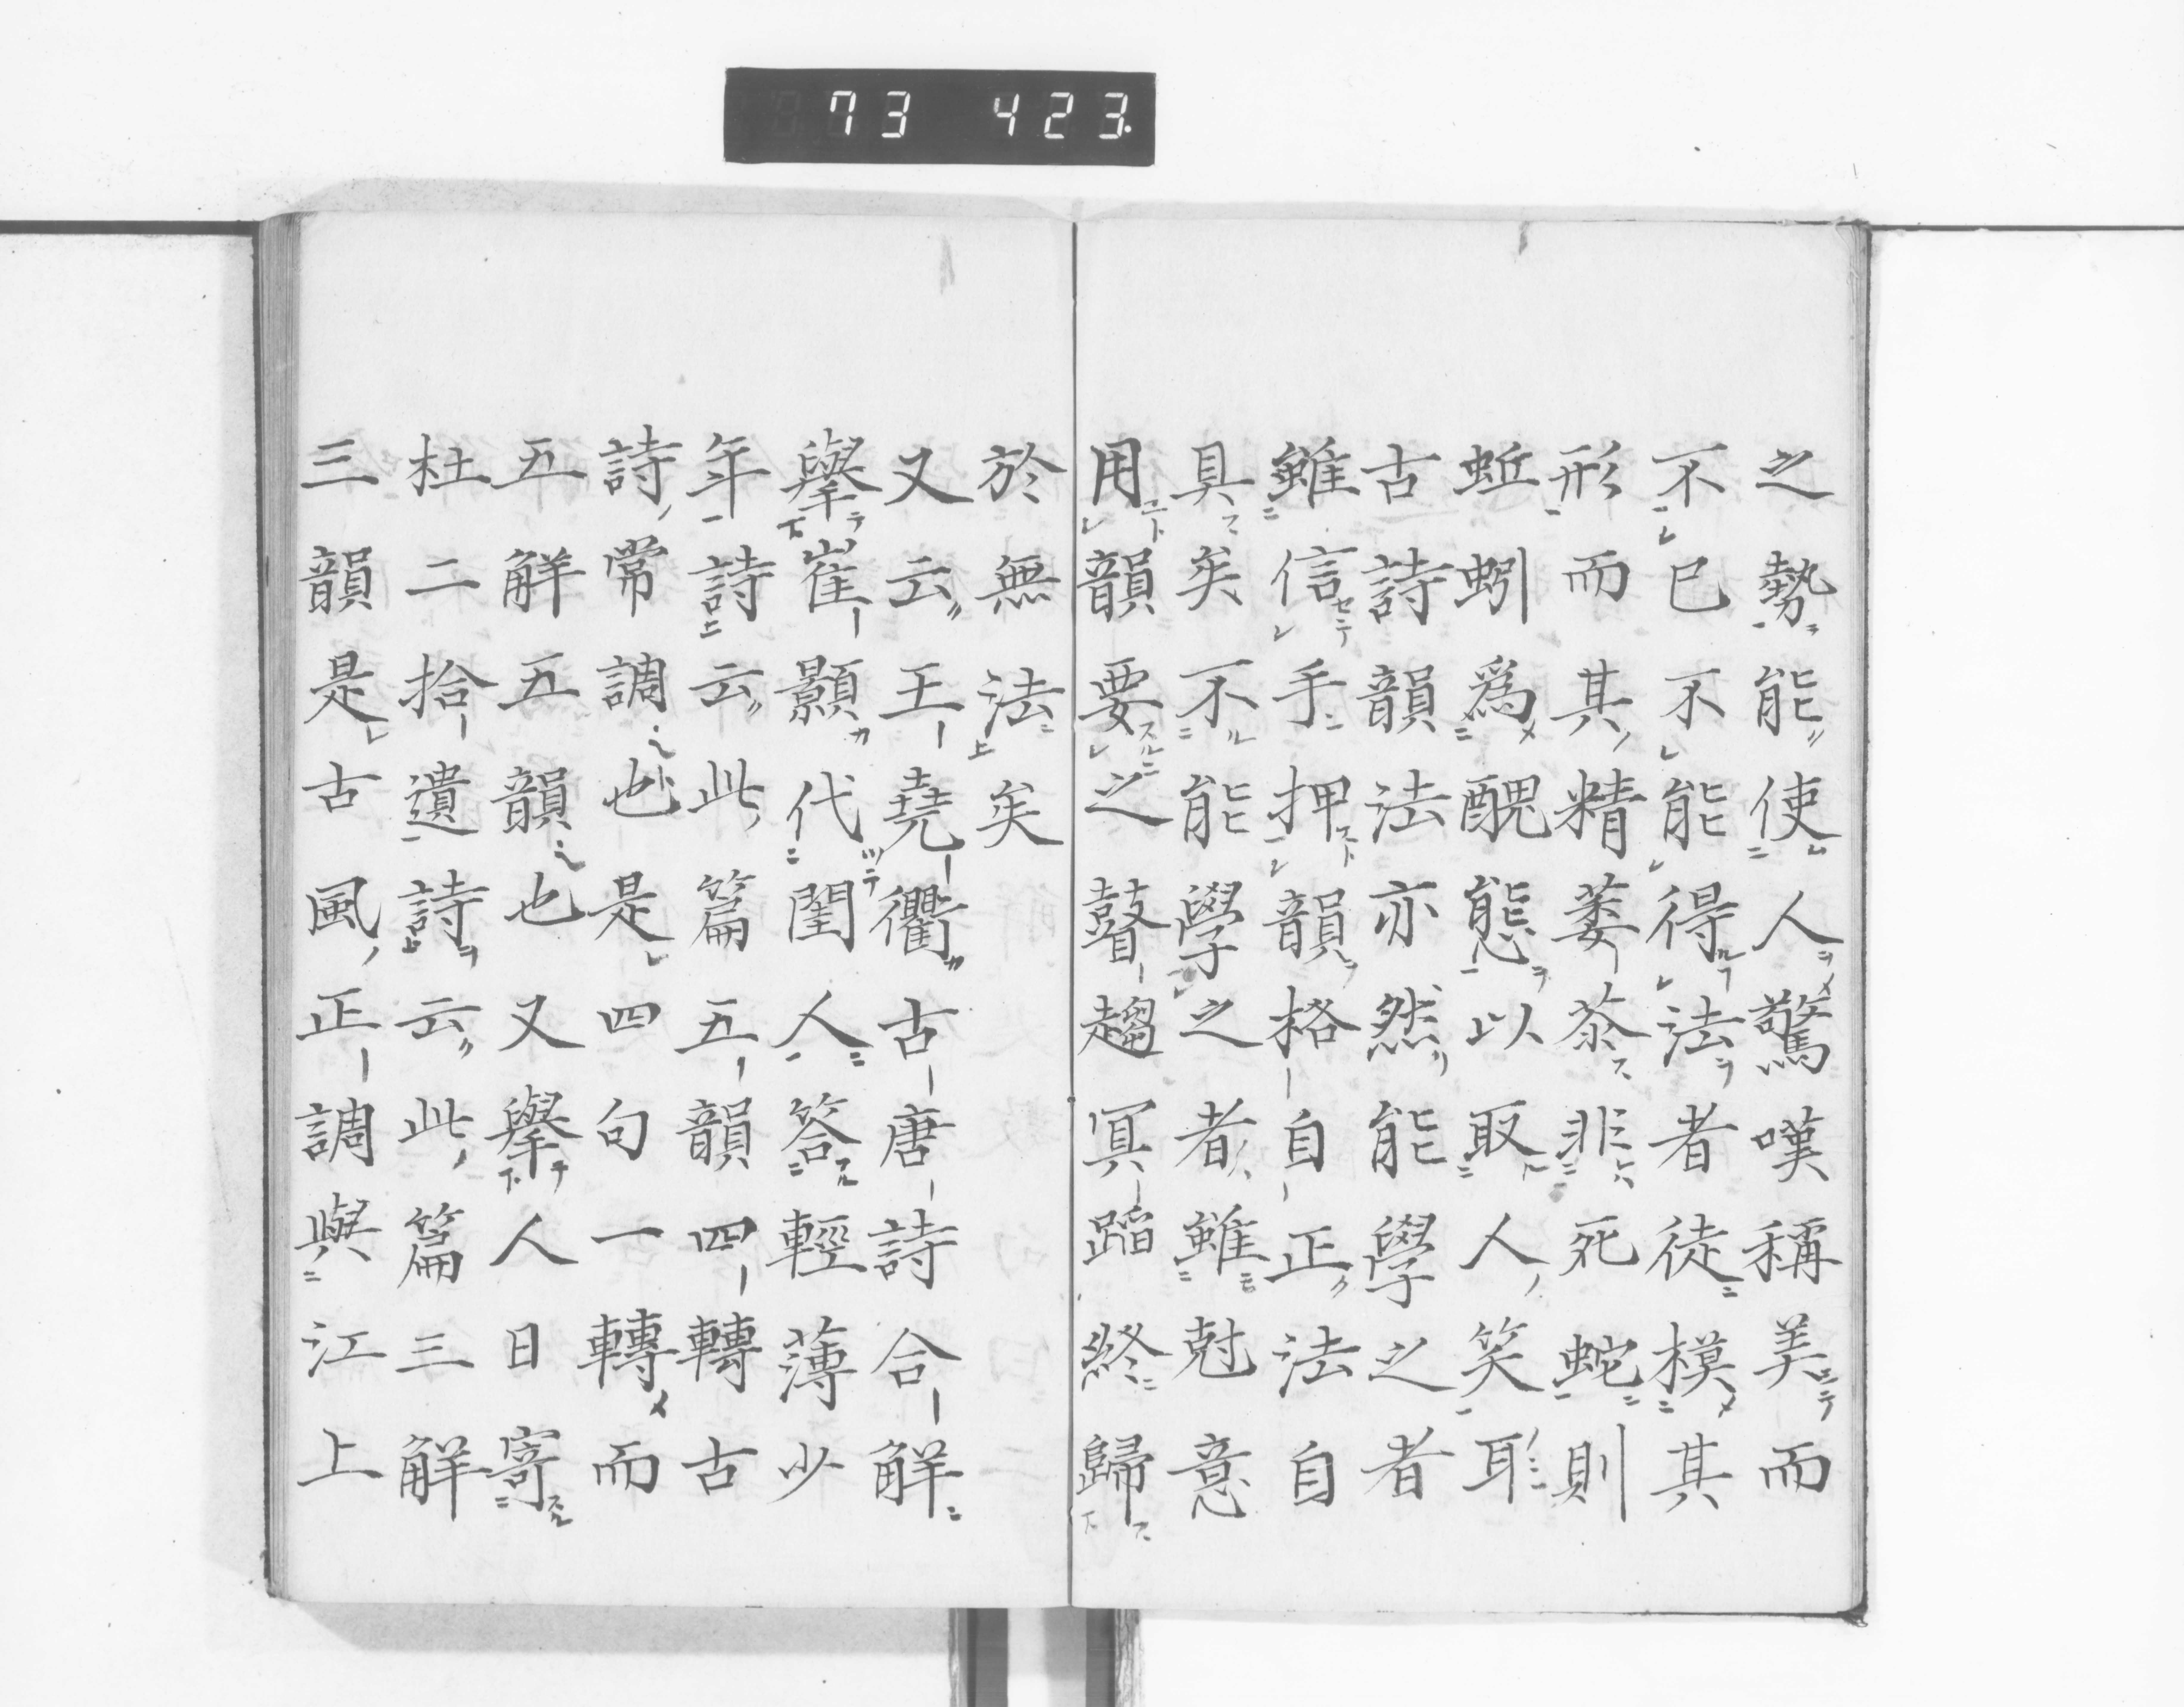 73 423.
之勢能使人驚嘆稱美而
不已不能得法者徒模其
形而其精萎茶非死蛇則
蚯蚓爲醜態以取人笑耳
古詩韻法亦然能學之者
雖信手押韻格自正法自
具矣不能學之者雖尅意
用韻要之瞽趨冥蹈終歸
於無法矣
又云王堯衢古唐詩合解
擧崔顥代閨人答輕薄少
年詩云此篇五韻四轉古
詩常調也是四句一轉而
五解五韻也又擧人日寄
杜二拾遺詩云此篇三解
三韻是古風正調與江上